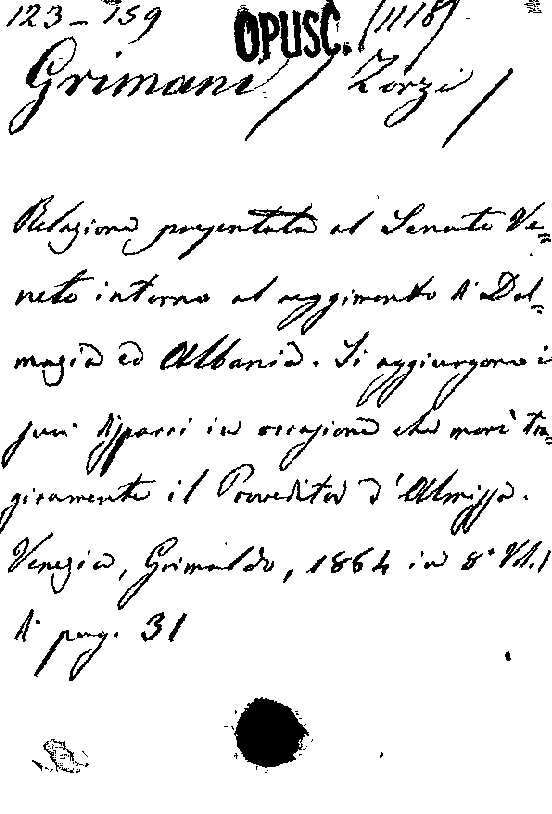 123-159 OPUSC. (1118)
Grimani / Zorzi /
Relazione presentata al Senato Ve=
neto intorno al reggimento di Dal=
mazia ed Albania. Si aggiungono i
suoi dispacci in occasione che morì tra=
gicamente il Proveditor d'Almissa.
Venezia, Grimaldo, 1864 in 8° Vol. 1
di pag. 31